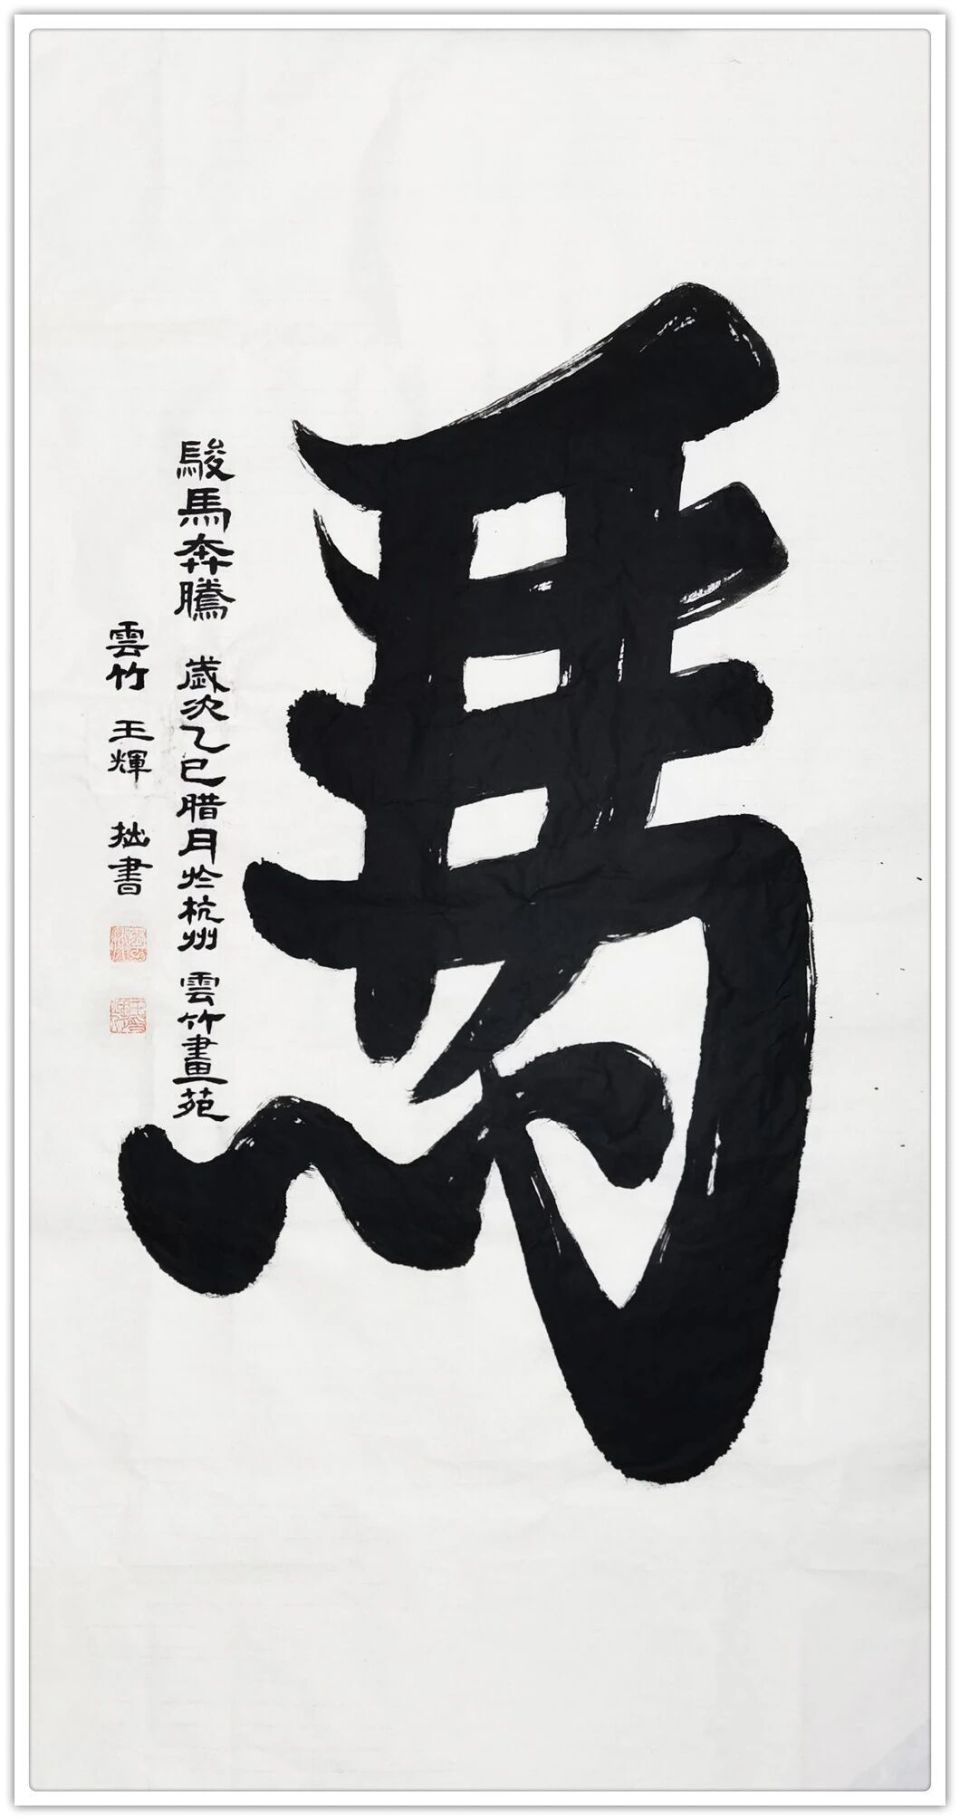 馬
駿馬奔騰 歲次乙巳腊月於杭州 雲竹畫苑
雲竹 王輝 拙書